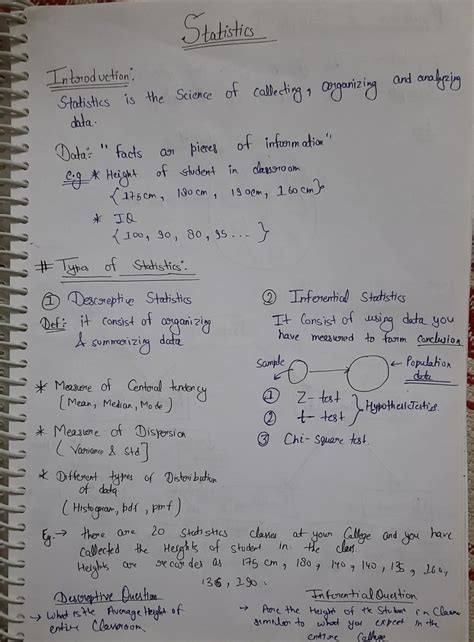 Statistics
Introduction:
Statistics is the Science of collecting, organizing and analyzing
data.
Data:- "facts or pieces of information"
e.g * Height of student in classroom
{175cm, 180cm, 190cm, 160cm}
* IQ
{100, 90, 80, 95 ... }
# Types of Statistics:
① Descreptive Statistics
Def: it consist of organizing
& summerizing data
* Measure of Central tendency
[Mean, Median, Mode]
* Measure of Dispersion
(Variance & Std]
* Different types of Distribution
of data
(Histogram, pdf, pmf)
② Inferential Statistics
It Consist of using data you
have measured to form conclusion
Sample
Population
data
① Z-test
② t-test
Hypothesis Testing
③ Chi-Square test
Eg:→ there are 20 Statistics classes at your College and you have
collected the Heights of Student in the class
Heights are recorded as 175 cm, 180, 140, 140, 135,
135, 190.
Descreptive Question
→ What is the Average Height of
entire Classroom
Inferential Question
→ Are the Height of the Student in Classroom
similar to what you expect in the
entire College